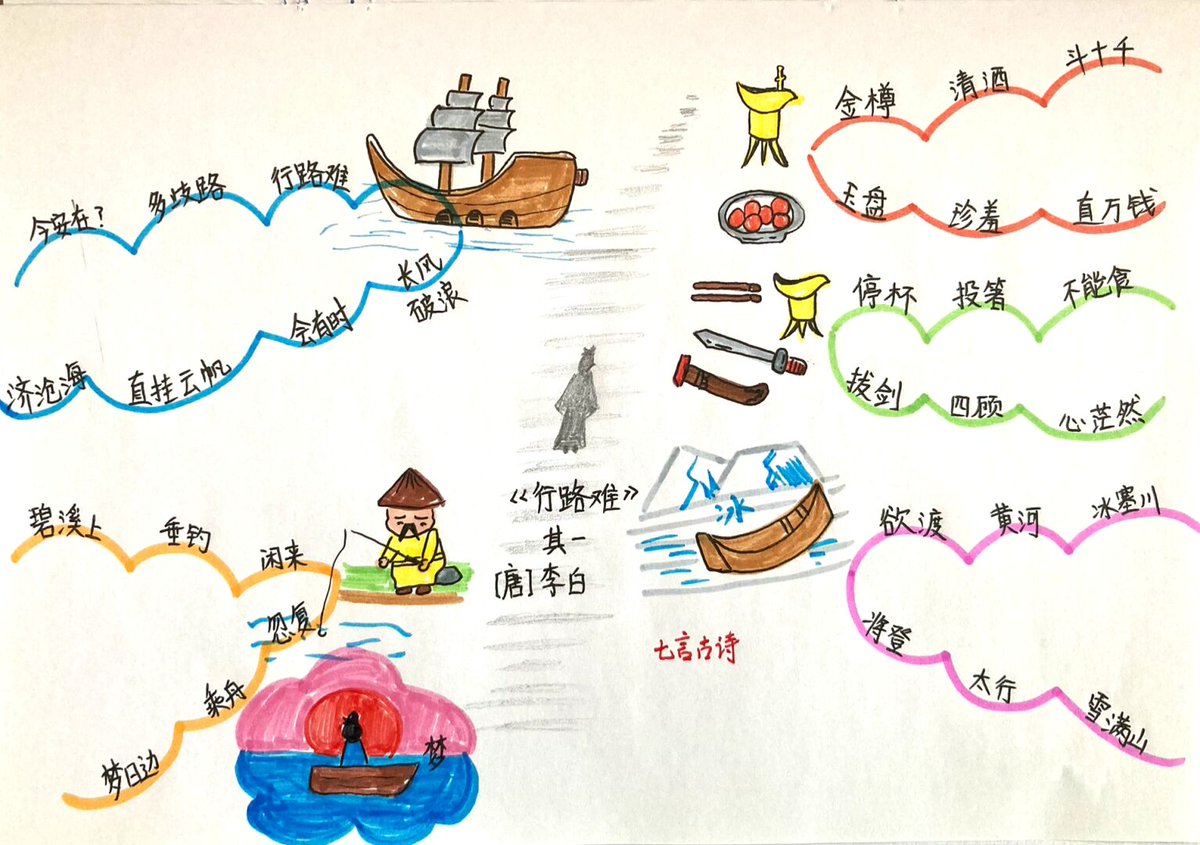 《行路难》
其一
[唐]李白
七言古诗
金樽 清酒 斗十千
玉盘 珍羞 直万钱
停杯 投箸 不能食
拔剑 四顾 心茫然
冰
欲渡 黄河 冰塞川
将登 太行 雪满山
闲来 垂钓 碧溪上
忽复 乘舟 梦日边
梦
行路难 多歧路 今安在?
长风
破浪 会有时 直挂云帆 济沧海